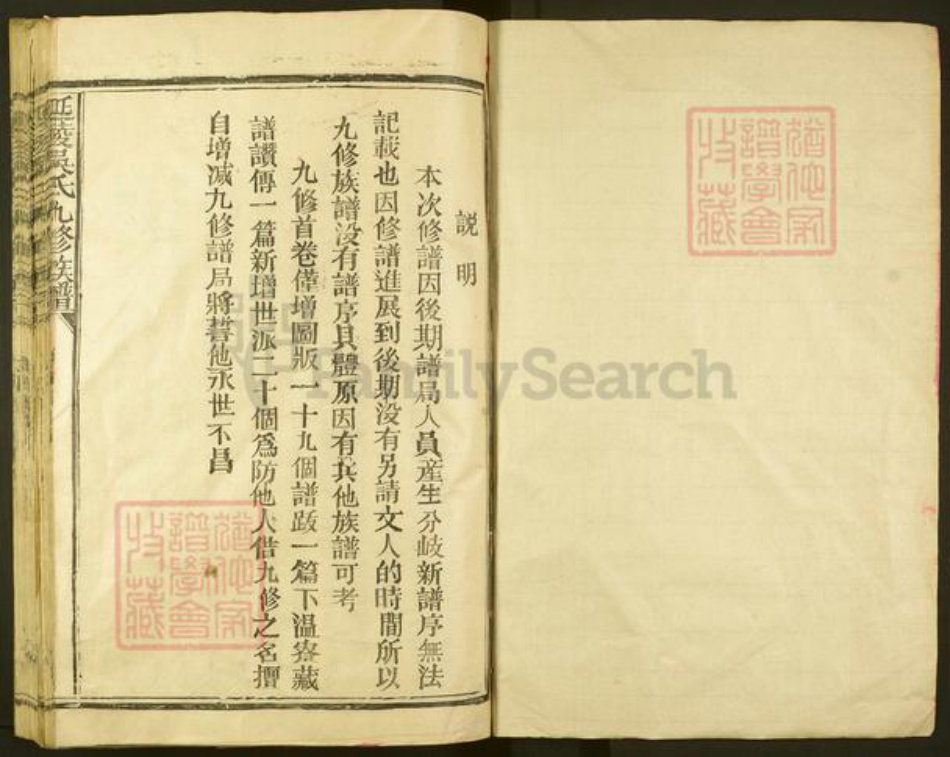 説明
本次修譜因後期譜局人員産生分歧新譜序無法
記載也因修譜進展到後期没有另請文人的時間所以
九修族譜没有譜序具體原因有其他族譜可考
九修首卷僅增圖版一十九個譜跋一篇下温寮藏
譜讃傳一篇新增世派二十個爲防他人借九修之名擅
自增减九修譜局將誓他永世不昌
延陵吳氏九修族譜
猶他家
譜學會
收藏
猶他家
譜學會
收藏
FamilySearch